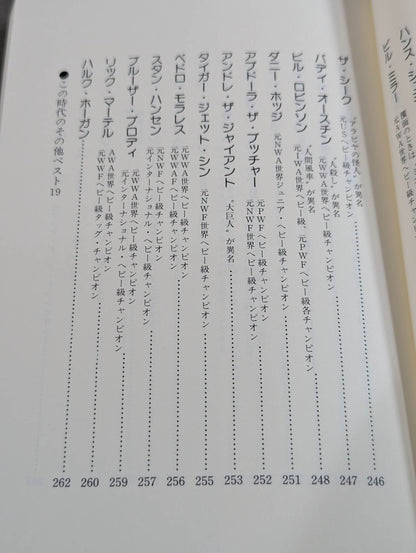 ビル・ミラー
ザ・シーク “アラビヤの怪人”が異名
元USヘビー級チャンピオン 246
バディ・オースチン “人殺し”が異名
元WWA世界ヘビー級チャンピオン 247
ビル・ロビンソン “人間風車”が異名
元IWA世界ヘビー級、元PWFヘビー級各チャンピオン 248
ダニー・ホッジ 元NWA世界ジュニア・ヘビー級チャンピオン 251
アブドーラ・ザ・ブッチャー 元PWFヘビー級チャンピオン
元NWF世界ヘビー級チャンピオン 252
アンドレ・ザ・ジャイアント “大巨人”が異名 253
タイガー・ジェット・シン 元NWF世界ヘビー級チャンピオン 255
ペドロ・モラレス 元WWA世界ヘビー級チャンピオン
元WWAFヘビー級チャンピオン 256
スタン・ハンセン 元PWFヘビー級チャンピオン
元インターナショナル・ヘビー級チャンピオン 257
ブルーザー・ブロディ 元WWA世界ヘビー級チャンピオン
元インターナショナル・ヘビー級チャンピオン 259
リック・マーテル AWA世界ヘビー級チャンピオン
元WWFヘビー級タッグ・チャンピオン 260
ハルク・ホーガン 262
●この時代のその他ベスト19